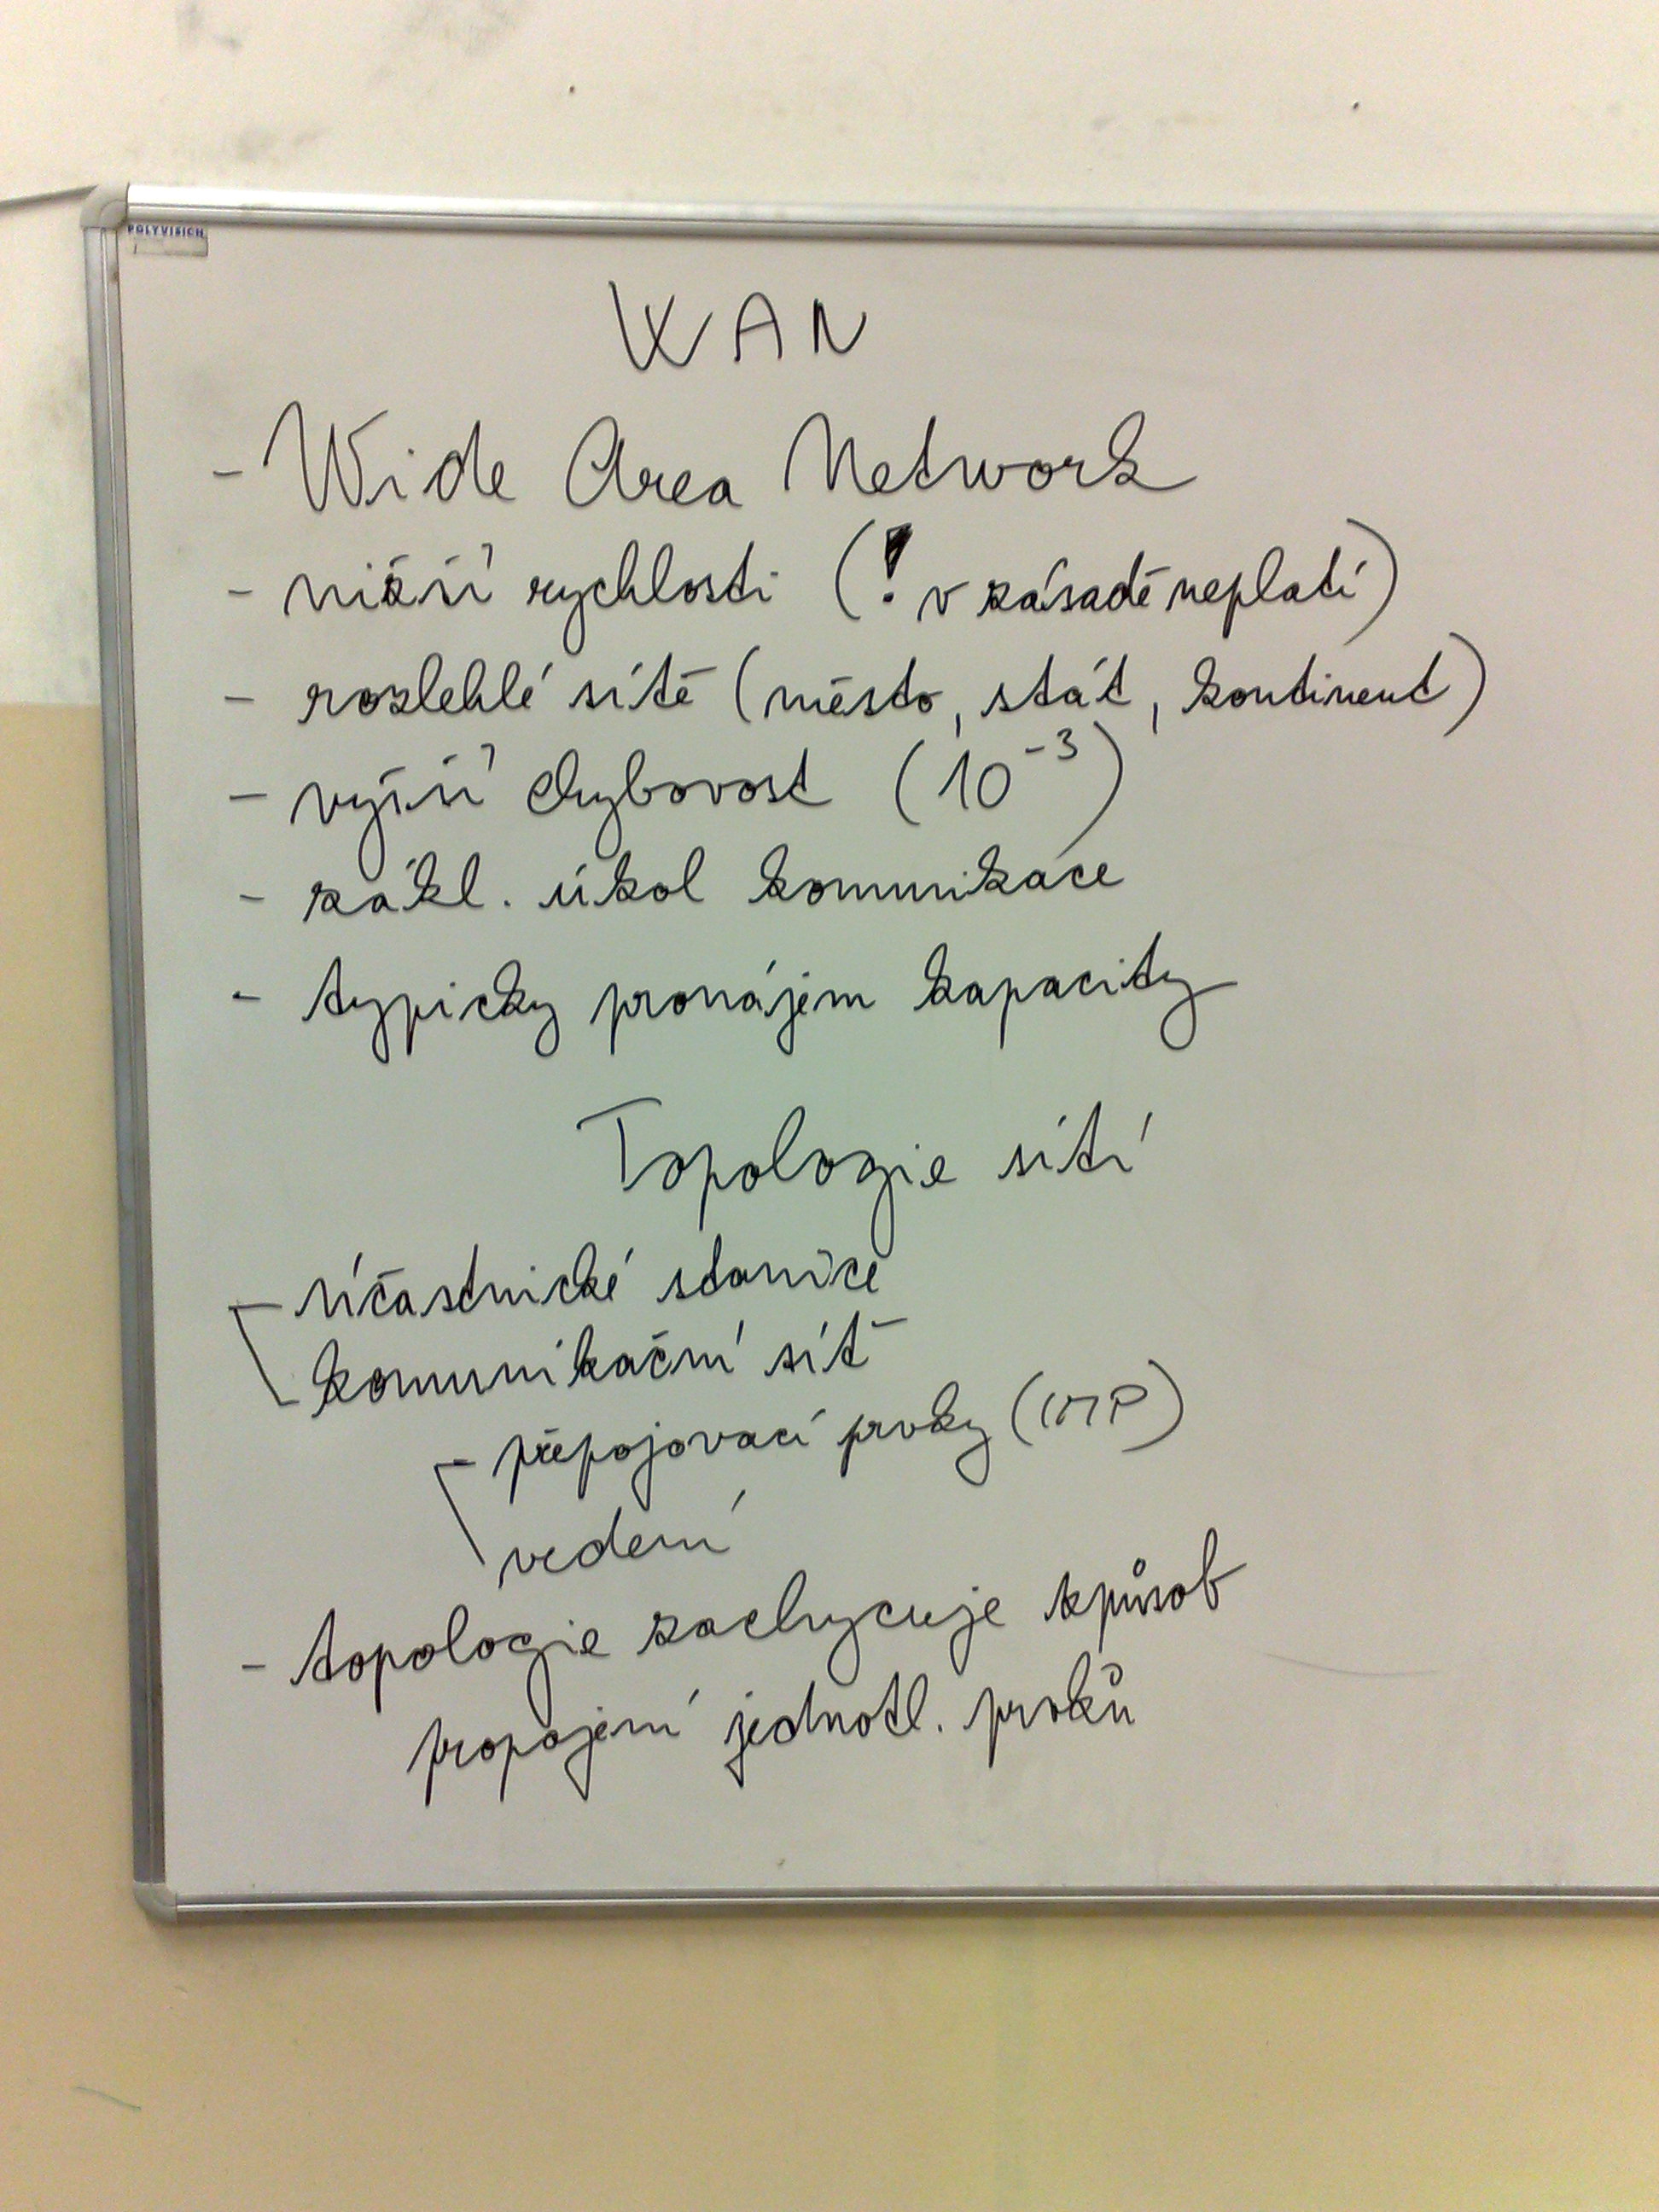 POLYVISION
WAN
- Wide Area Network
- nižší rychlosti (! v zásadě neplatí)
- rozlehlé sítě (město, stát, kontinent)
- vyšší chybovost (10⁻³)
- zákl. úkol komunikace
- typicky pronájem kapacity
Topologie sítí
- účastnické stanice
komunikační síť
- přepojovací prvky (IMP)
vedení
- topologie zachycuje způsob
propojení jednotl. prvků